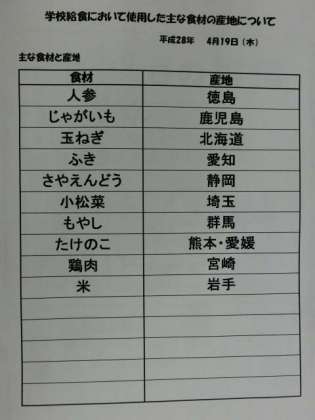 学校給食において使用した主な食材の産地について
平成28年 4月19日(木)
主な食材と産地
食材 産地
人参 徳島
じゃがいも 鹿児島
玉ねぎ 北海道
ふき 愛知
さやえんどう 静岡
小松菜 埼玉
もやし 群馬
たけのこ 熊本・愛媛
鶏肉 宮崎
米 岩手